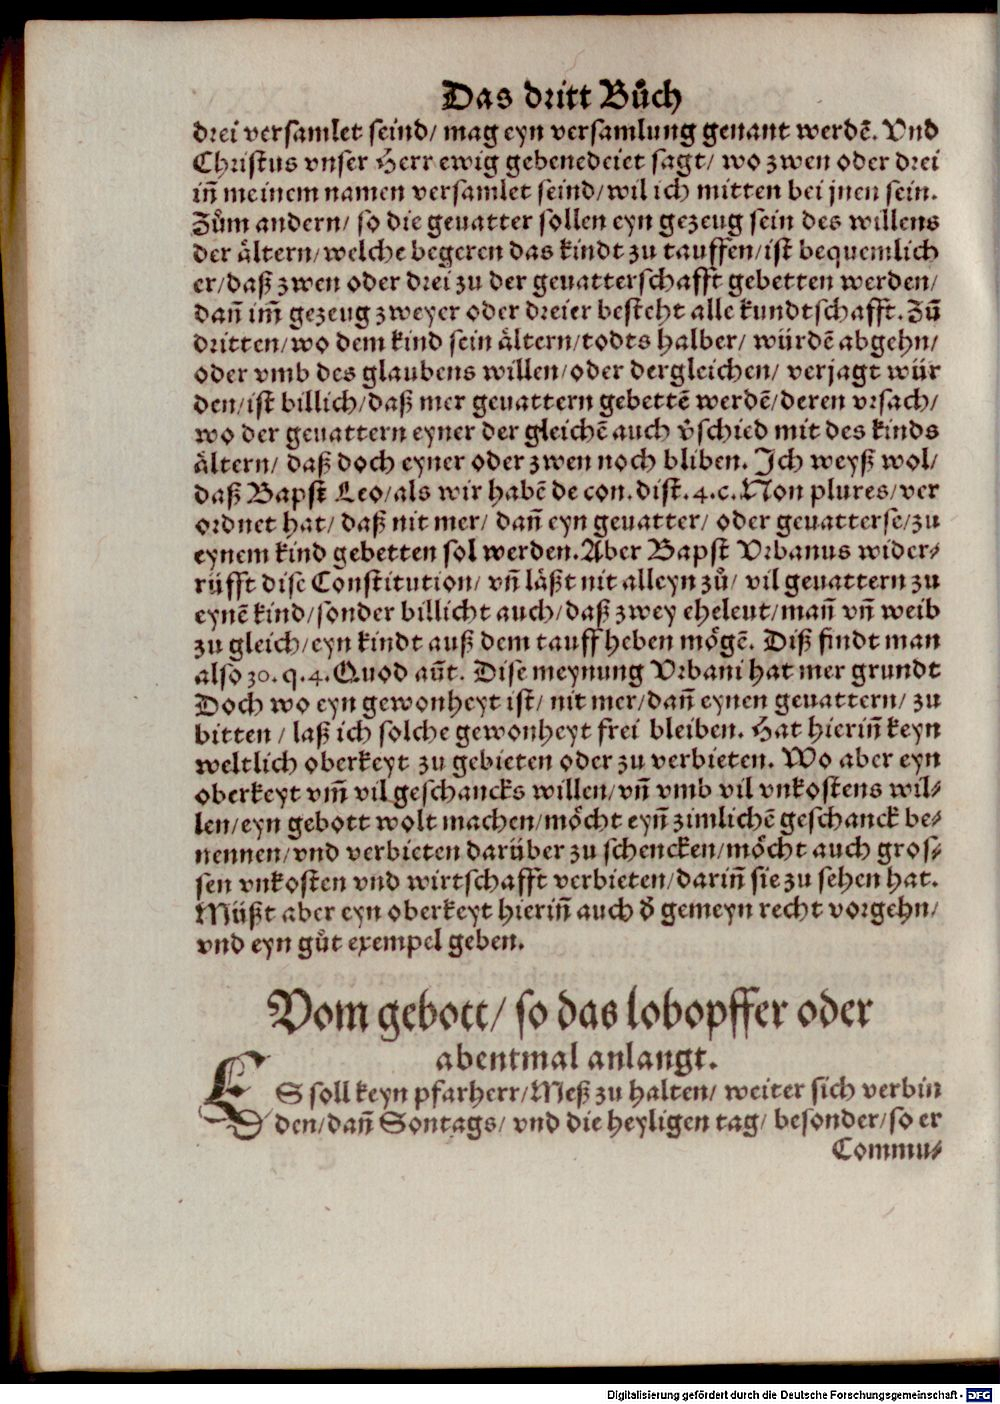 Das dritt Bůch
drei versamlet seind/ mag eyn versamlung genant werdẽ. Vnd
Christus vnser Herr ewig gebenedeiet sagt/ wo zwen oder drei
iñ meinem namen versamlet seind/ wil ich mitten bei jnen sein.
Zům andern/ so die geuatter sollen eyn gezeug sein des willens
der ältern/ welche begeren das kindt zu tauffen/ ist bequemlich
er/ daß zwen oder drei zu der geuatterschafft gebetten werden/
dañ im̃ gezeug zweyer oder dreier besteht alle kundtschafft. Zũ
dritten/ wo dem kind sein ältern/ todts halber/ würdẽ abgehn/
oder vmb des glaubens willen/ oder dergleichen/ verjagt wür
den/ ist billich/ daß mer geuattern gebettẽ werdẽ/ deren vrsach/
wo der geuattern eyner der gleichẽ auch v̄schied mit des kinds
ältern/ daß doch eyner oder zwen noch bliben. Ich weyß wol/
daß Bapst Leo/ als wir habẽ de con. dist. 4. c. Non plures/ ver
ordnet hat/ daß nit mer/ dañ eyn geuatter/ oder geuatterse/ zu
eynem kind gebetten sol werden. Aber Bapst Vrbanus wider⸗
rüfft dise Constitution/ vñ läßt nit alleyn zů/ vil geuattern zu
eynẽ kind/ sonder billicht auch/ daß zwey eheleut/ mañ vñ weib
zu gleich/ eyn kindt auß dem tauff heben mögẽ. Diß findt man
also 30. q. 4. Quod aũt. Dise meynung Vrbani hat mer grundt
Doch wo eyn gewonheyt ist/ nit mer/ dañ eynen geuattern/ zu
bitten / laß ich solche gewonheyt frei bleiben. Hat hieriñ keyn
weltlich oberkeyt zu gebieten oder zu verbieten. Wo aber eyn
oberkeyt vm̃ vil geschancks willen/ vñ vmb vil vnkostens wil⸗
len/ eyn gebott wolt machen/ möcht eyñ zimlichẽ geschanck be⸗
nennen/ vnd verbieten darüber zu schencken/ möcht auch gros⸗
sen vnkosten vnd wirtschafft verbieten/ dariñ sie zu sehen hat.
Müßt aber eyn oberkeyt hieriñ auch d̄ gemeyn recht vorgehn/
vnd eyn gůt exempel geben.
Vom gebott/ so das lobopffer oder
abentmal anlangt.
ES soll keyn pfarherr/ Meß zu halten/ weiter sich verbin
den/ dañ Sontags/ vnd die heyligen tag/ besonder/ so er
Commu⸗
Digitalisierung gefördert durch die Deutsche Forschungsgemeinschaft - DFG